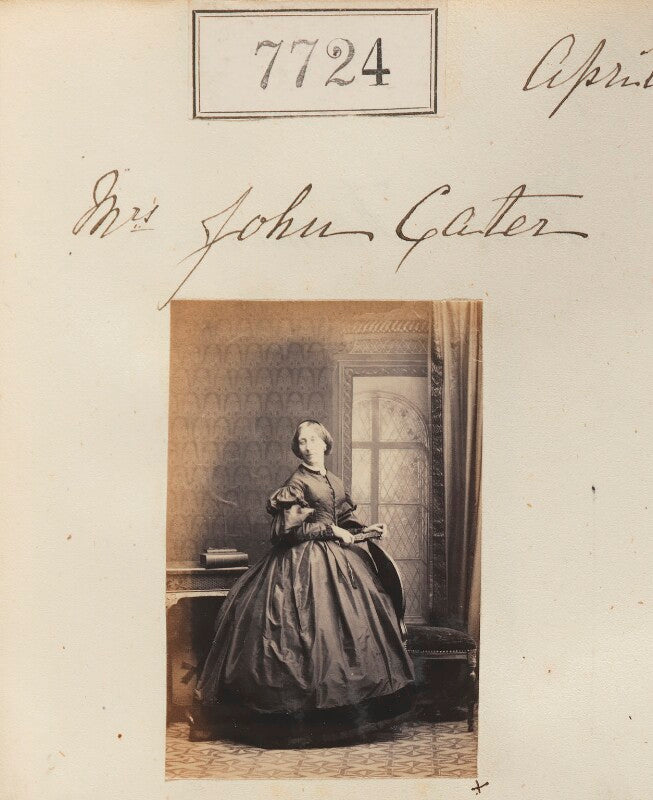 7724
April
Mrs John Cater